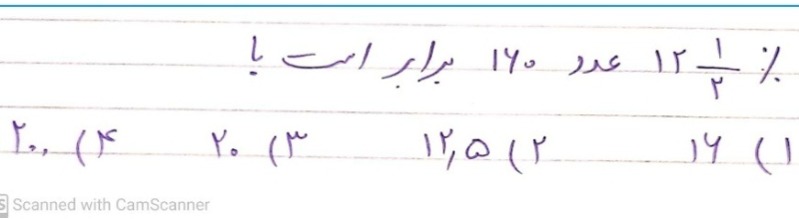 ٪ ۱۲ ۱/۲ عدد ۱۶۰ برابر است با
۱) ۱۶ ۲) ۱۲,۵ ۳) ۲۰ ۴) ۲۰۰
Scanned with CamScanner